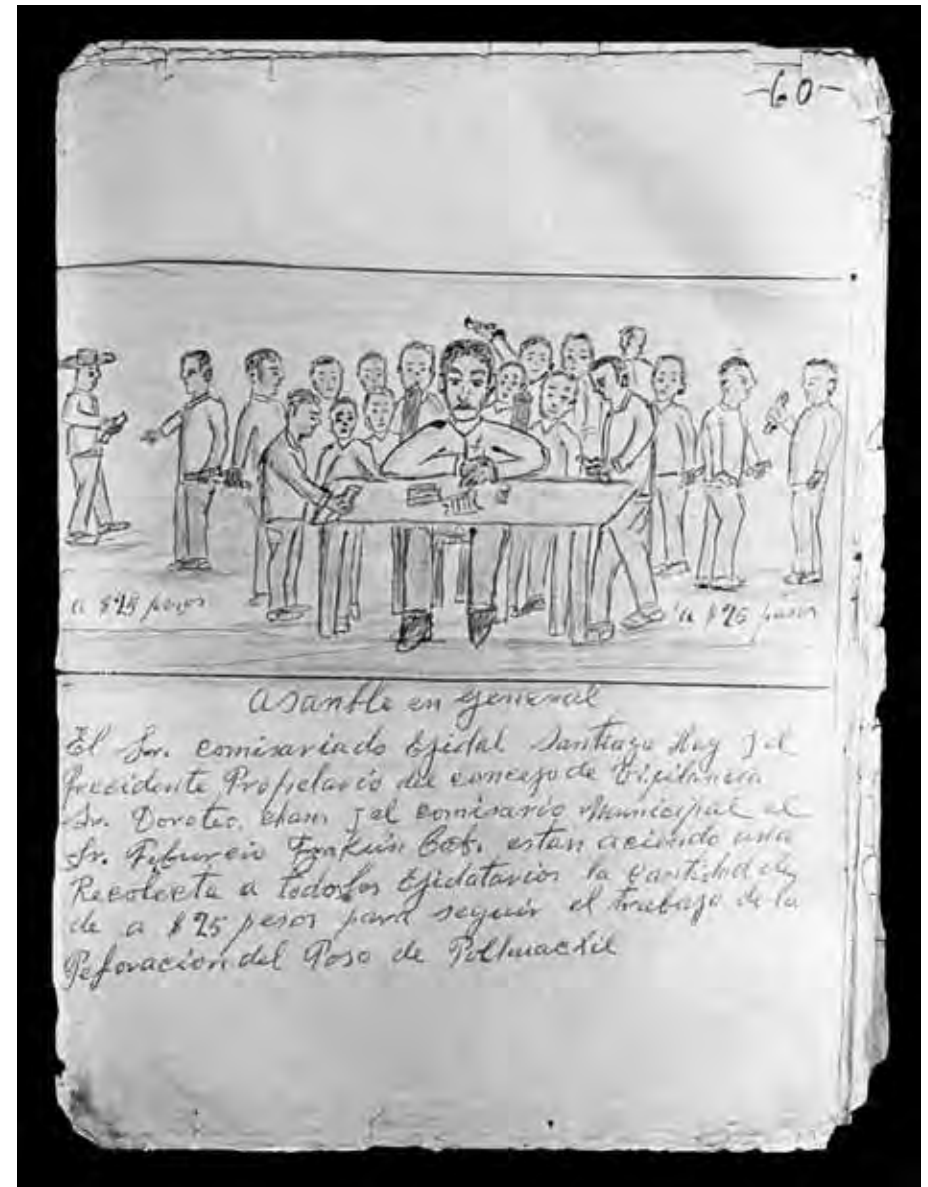 -60-
a $25 pesos
a $25 pesos
Asamble en General
El Sr. Comisariado Ejidal Santiago May y el
Precidente Propelario del concejo de Vigilancia
Sr. Doroteo Cham y el comisario Municipal el
Sr. Tiburcio Cob. estan aciendo una
Recolecta a todos los Ejidatarios la cantidad
de a $25 pesos para seguir el trabajo de la
Peforacion del Poso de